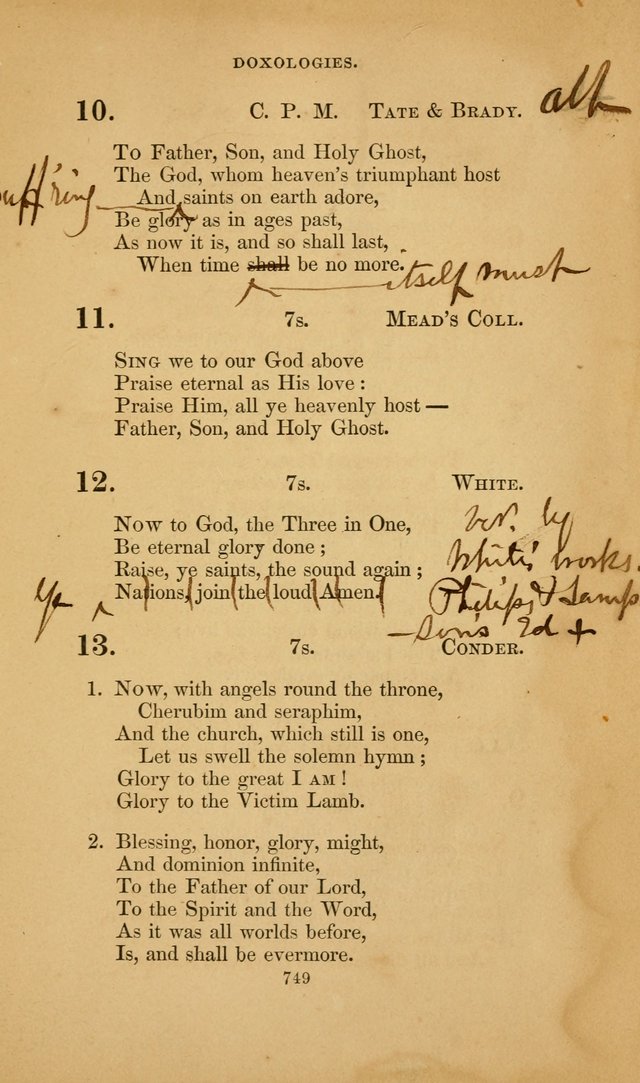 DOXOLOGIES.
10. C. P. M. TATE & BRADY. alt
To Father, Son, and Holy Ghost,
The God, whom heaven's triumphant host
uff'ring And saints on earth adore,
Be glory as in ages past,
As now it is, and so shall last,
When time shall be no more.
itself must
11. 7s. MEAD'S COLL.
SING we to our God above
Praise eternal as His love :
Praise Him, all ye heavenly host —
Father, Son, and Holy Ghost.
12. 7s. WHITE.
Now to God, the Three in One,
ver. by
Be eternal glory done ;
White's works.
Raise, ye saints, the sound again ;
ye Nations, join the loud Amen.
Philips &
son's Ed +
13. 7s. CONDER.
1. Now, with angels round the throne,
Cherubim and seraphim,
And the church, which still is one,
Let us swell the solemn hymn ;
Glory to the great I AM !
Glory to the Victim Lamb.
2. Blessing, honor, glory, might,
And dominion infinite,
To the Father of our Lord,
To the Spirit and the Word,
As it was all worlds before,
Is, and shall be evermore.
749